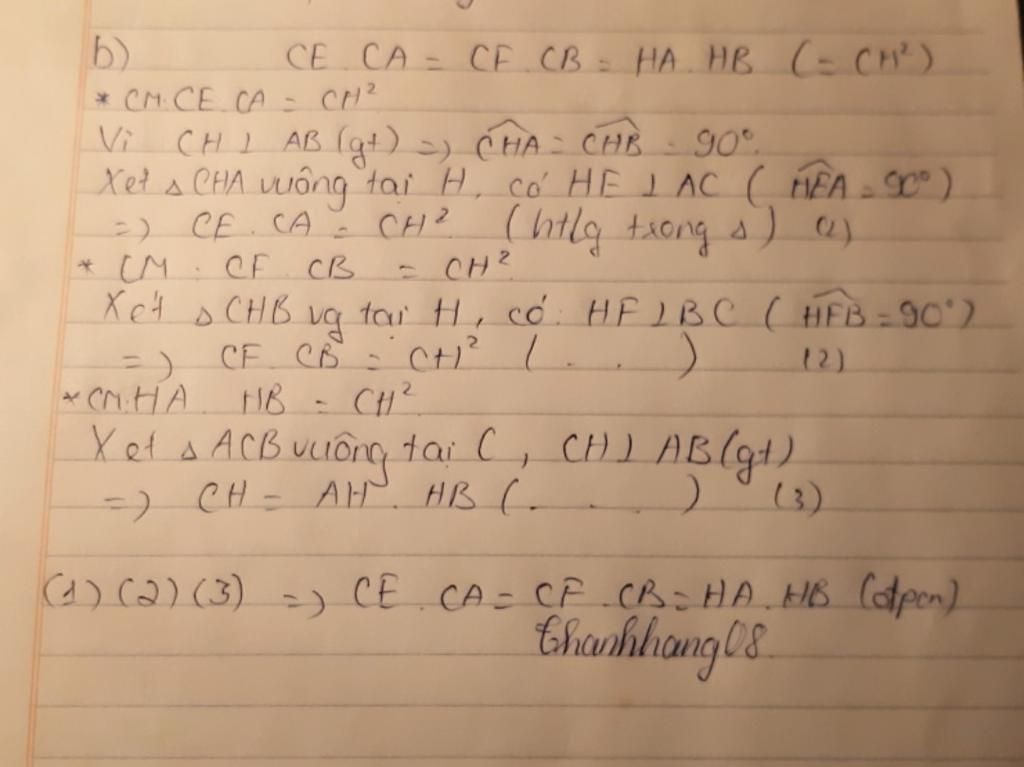 b) CE . CA = CF . CB = HA . HB (= CH²)
* CM: CE . CA = CH²
Vì CH ⊥ AB (gt) => ĈHA = ĈHB = 90°.
Xét △ CHA vuông tại H, có HE ⊥ AC ( ĤEA = 90°)
=> CE . CA = CH² (htlg trong △) (1)
* CM : CF . CB = CH²
Xét △ CHB vg tại H, có : HF ⊥ BC ( ĤFB = 90°)
=> CF . CB = CH² ( . . ) (2)
* CM: HA . HB = CH²
Xét △ ACB vuông tại C, CH ⊥ AB (gt)
=> CH = AH . HB ( . . . ) (3)
(1) (2) (3) => CE . CA = CF . CB = HA . HB (đpcm)
thanhhang08.